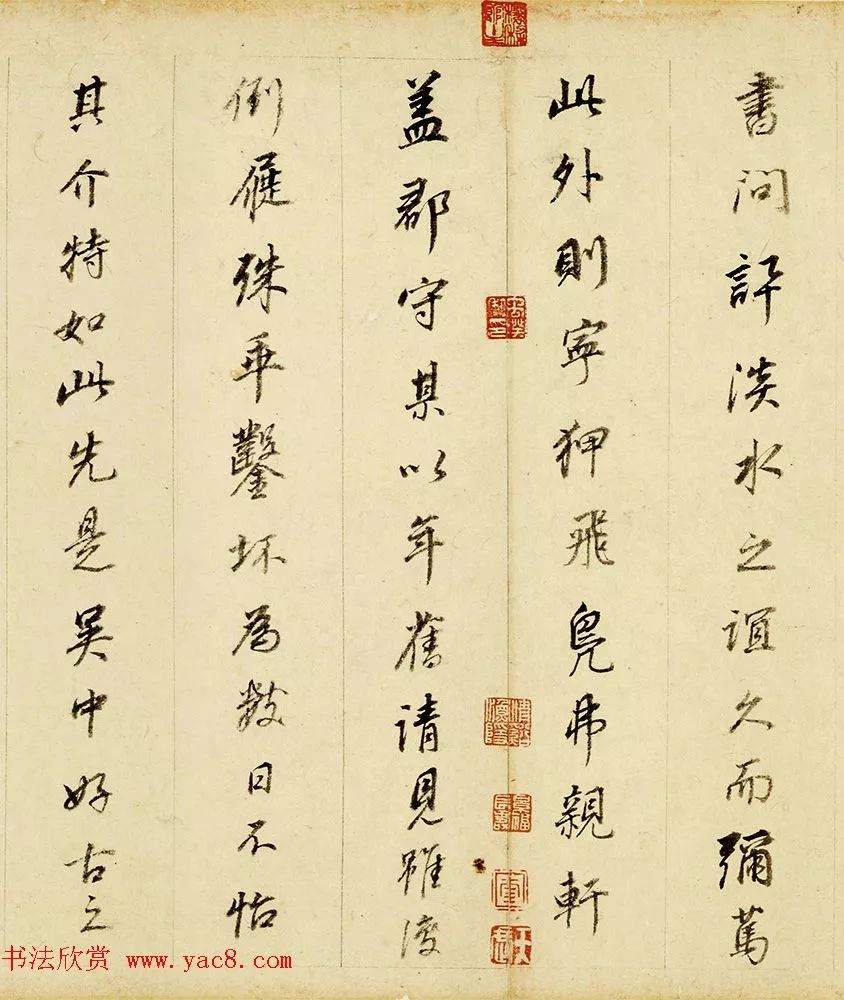 書問訂淡水之誼久而彌篤
此外則寧狎飛鳧弗親軒
盖郡守某以年舊請見雖復
倒屣殊乖鑿坏為数日不怡
其介特如此先是吴中好古之
书法欣赏 www.yac8.com